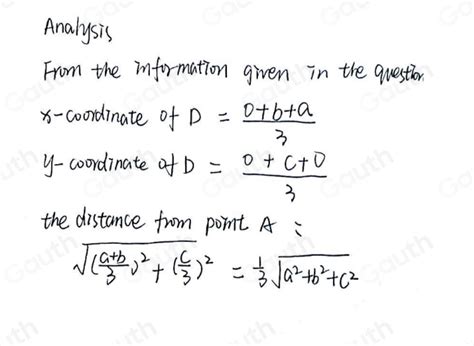 Analysis
From the information given in the question
x-coordinate of D = (0+b+a)/3
y-coordinate of D = (0+c+0)/3
the distance from point A :
√((a+b)/3)² + (c/3)² = 1/3 √a²+b²+c²